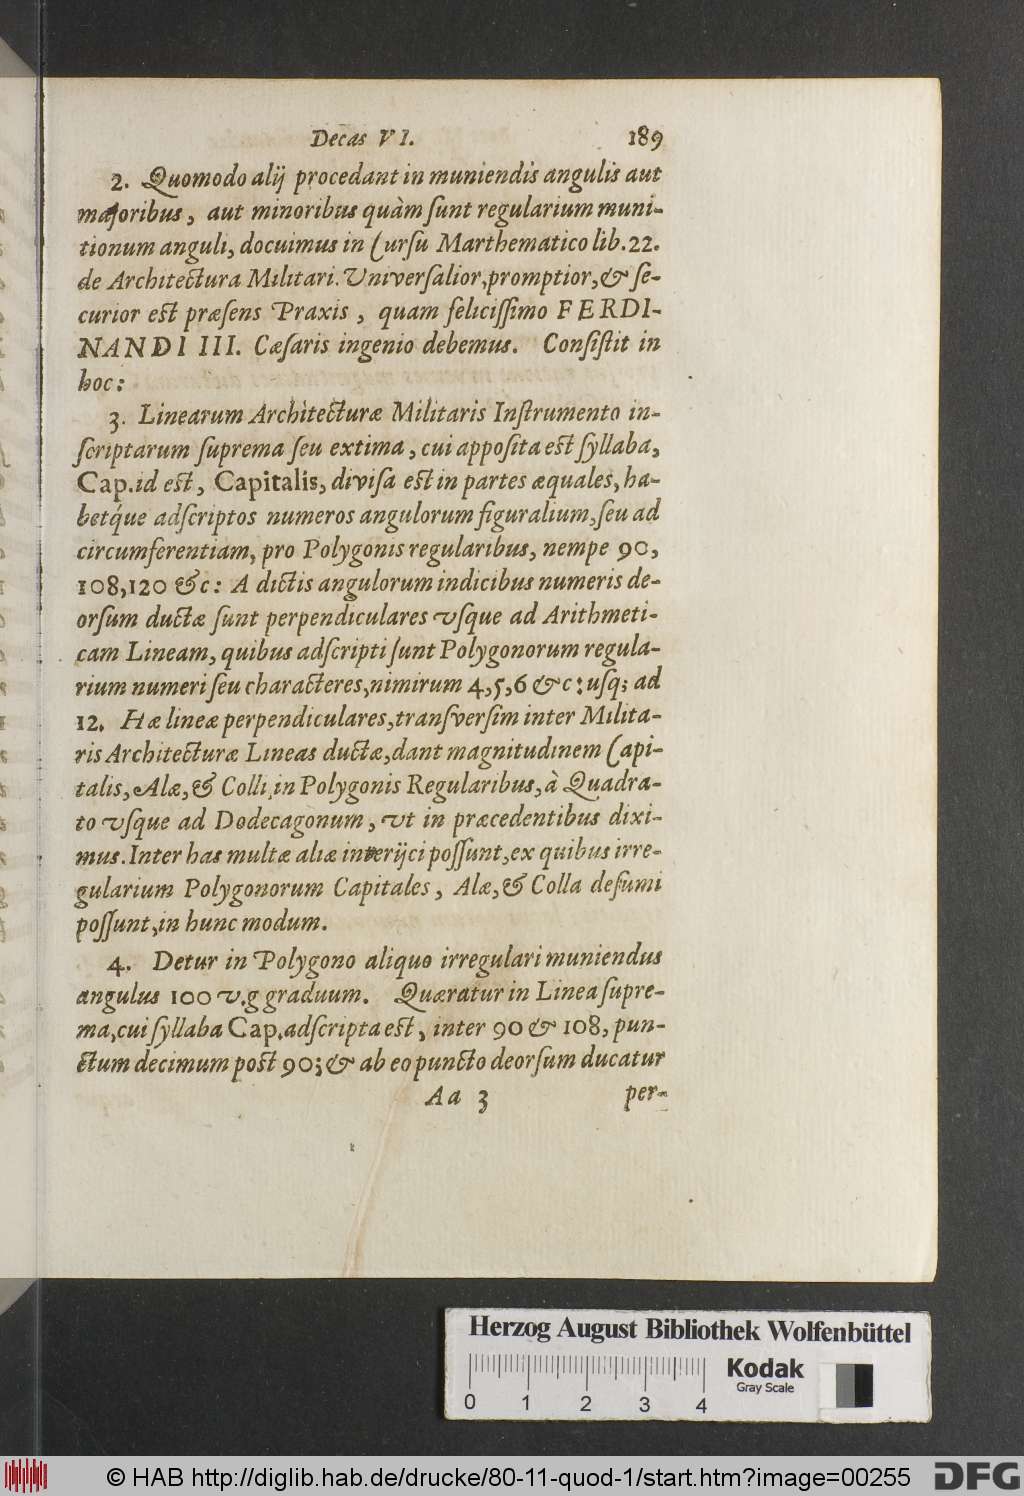 Decas VI. 189
2. Quomodo alij procedant in muniendis angulis aut
majoribus, aut minoribus quàm ſunt regularium muni-
tionum anguli, docuimus in Curſu Marthematico lib. 22.
de Architectura Militari. Univerſalior, promptior, & ſe-
curior eſt præſens Praxis, quam feliciſſimo FERDI-
NANDI III. Cæſaris ingenio debemus. Conſiſtit in
hoc:
3. Linearum Architecturæ Militaris Inſtrumento in-
ſcriptarum ſuprema ſeu extima, cui appoſita eſt ſyllaba,
Cap. id eſt, Capitalis, diviſa eſt in partes æquales, ha-
betq́ue adſcriptos numeros angulorum figuralium, ſeu ad
circumferentiam, pro Polygonis regularibus, nempe 90,
108, 120 &c: A dictis angulorum indicibus numeris de-
orſum ductæ ſunt perpendiculares vſque ad Arithmeti-
cam Lineam, quibus adſcripti ſunt Polygonorum regula-
rium numeri ſeu characteres, nimirum 4, 5, 6 &c: uſq; ad
12. Hæ lineæ perpendiculares, tranſverſim inter Milita-
ris Architecturæ Lineas ductæ, dant magnitudinem Capi-
talis, Alæ, & Colli in Polygonis Regularibus, à Quadra-
to vſque ad Dodecagonum, vt in præcedentibus dixi-
mus. Inter has multæ aliæ interijci poſſunt, ex quibus irre-
gularium Polygonorum Capitales, Alæ, & Colla deſumi
poſſunt, in hunc modum.
4. Detur in Polygono aliquo irregulari muniendus
angulus 100 v.g graduum. Quæratur in Linea ſupre-
ma, cui ſyllaba Cap. adſcripta eſt, inter 90 & 108, pun-
ctum decimum poſt 90; & ab eo puncto deorſum ducatur
Aa 3 per-
Herzog August Bibliothek Wolfenbüttel
Kodak
Gray Scale
0 1 2 3 4
© HAB http://diglib.hab.de/drucke/80-11-quod-1/start.htm?image=00255 DFG